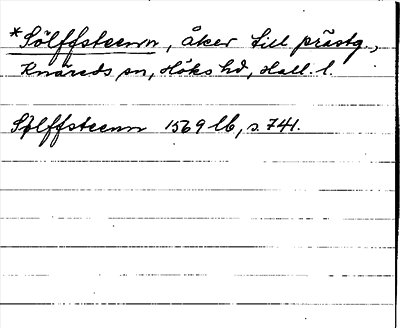 *Sölffsteenn, åker till prästg.,
Knäreds sn, Höks hd, Hall. l.
Sölffsteenn 1569 lb, s. 741.